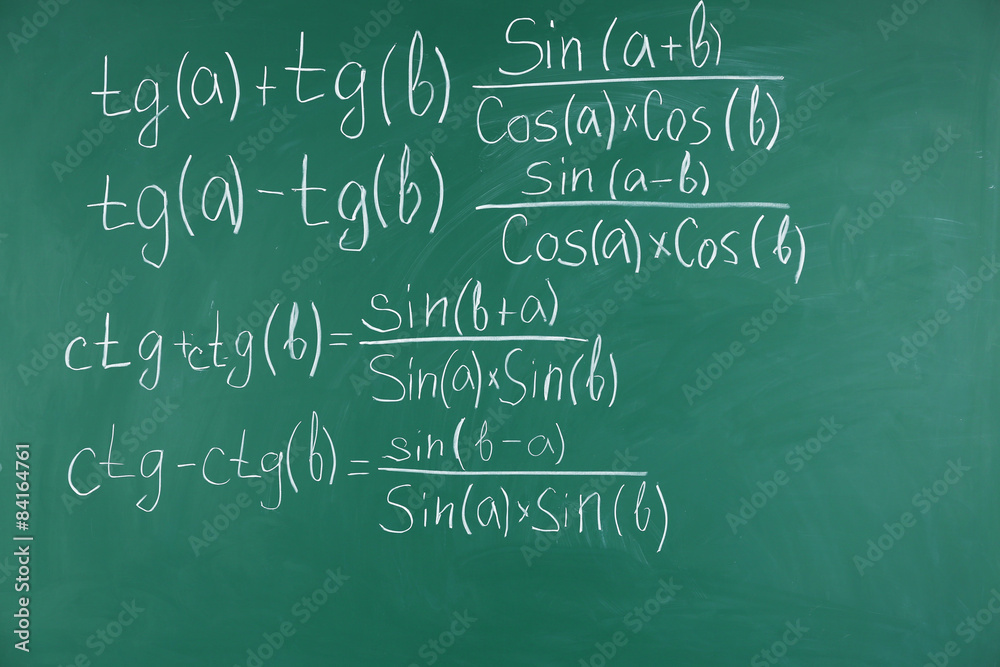 tg(a)+tg(b) Sin(a+b)
Cos(a)×Cos(b)
tg(a)-tg(b) Sin(a-b)
Cos(a)×Cos(b)
ctg+ctg(b)= Sin(b+a)
Sin(a)×Sin(b)
ctg-ctg(b)= sin(b-a)
Sin(a)×Sin(b)
Adobe Stock | #84164761